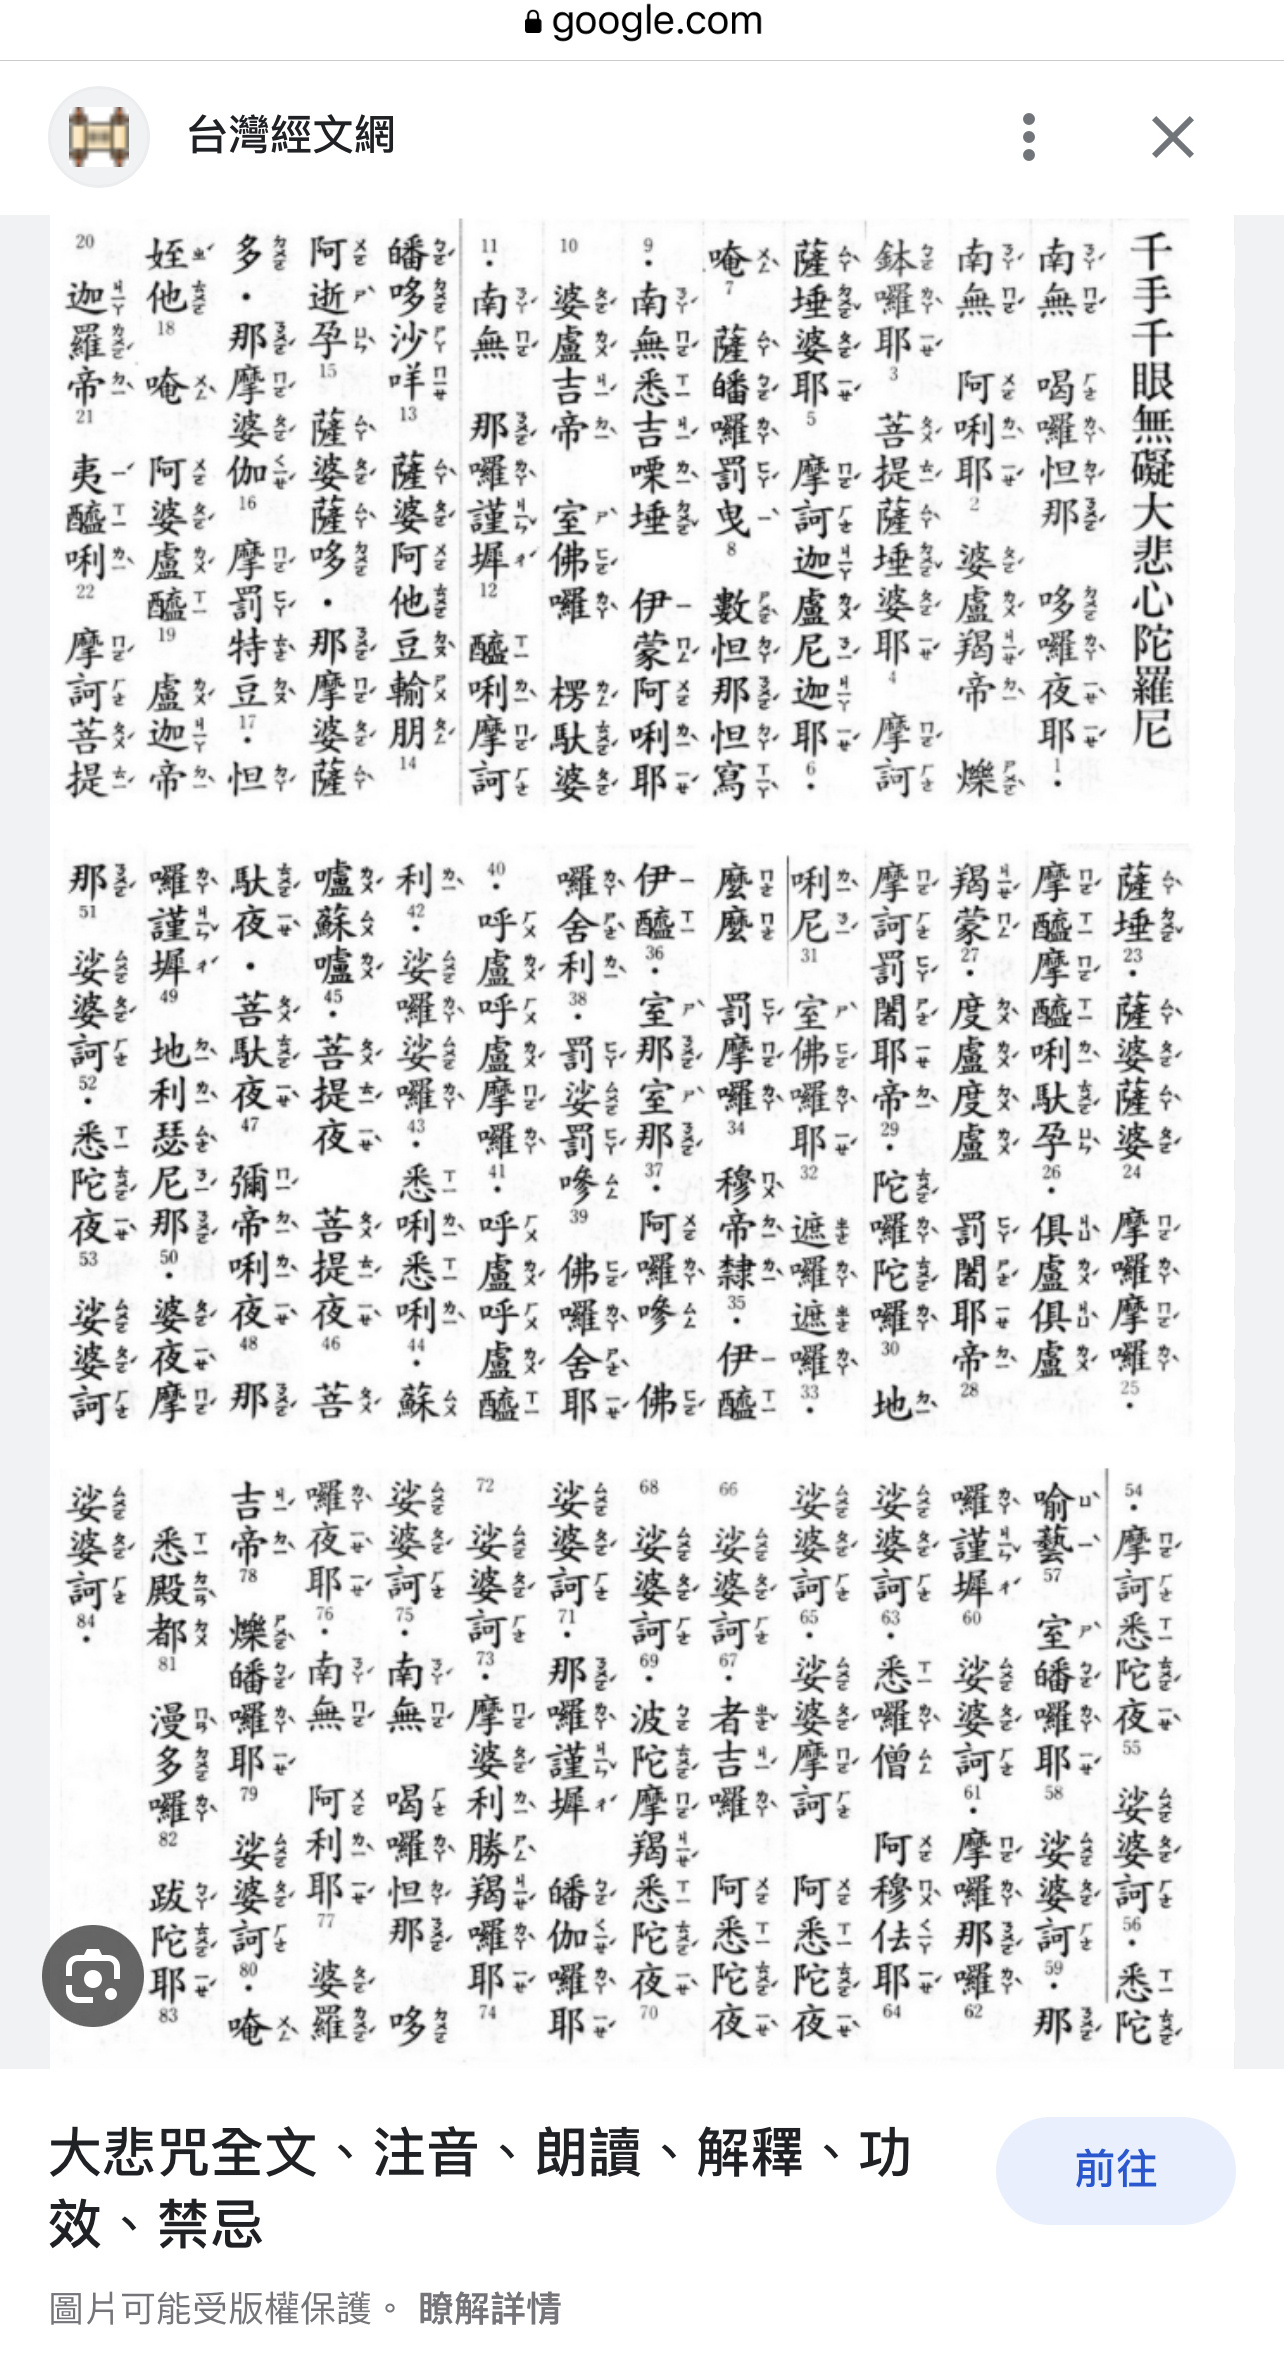 google.com
台灣經文網
千手千眼無礙大悲心陀羅尼
南無 喝囉怛那 哆囉夜耶1.
南無 阿唎耶2 婆盧羯帝 爍
鉢囉耶3 菩提薩埵婆耶4 摩訶
薩埵婆耶5 摩訶迦盧尼迦耶6.
唵7 薩皤囉罰曳8 數怛那怛寫
9. 南無悉吉㗚埵 伊蒙阿唎耶
10 婆盧吉帝 室佛囉 楞馱婆
11. 南無 那囉謹墀12 醯唎摩訶
皤哆沙咩13 薩婆阿他豆輸朋14
阿逝孕15 薩婆薩哆.那摩婆薩
多.那摩婆伽16 摩罰特豆17.怛
姪他18 唵 阿婆盧醯19 盧迦帝
20 迦羅帝21 夷醯唎22 摩訶菩提
薩埵23.薩婆薩婆24 摩囉摩囉25.
摩醯摩醯唎馱孕26.俱盧俱盧
羯蒙27.度盧度盧 罰闍耶帝28
摩訶罰闍耶帝29.陀囉陀囉30 地
唎尼31 室佛囉耶32 遮囉遮囉33.
麼麼 罰摩囉34 穆帝隸35.伊醯
伊醯36.室那室那37.阿囉嘇 佛
囉舍利38.罰娑罰嘇39 佛囉舍耶
40.呼盧呼盧摩囉41.呼盧呼盧醯
利42.娑囉娑囉43.悉唎悉唎44.蘇
嚧蘇嚧45.菩提夜 菩提夜46 菩
馱夜.菩馱夜47 彌帝唎夜48 那
囉謹墀49 地利瑟尼那50.婆夜摩
那51 娑婆訶52.悉陀夜53 娑婆訶
54.摩訶悉陀夜55 娑婆訶56.悉陀
喻藝57 室皤囉耶58 娑婆訶59.那
囉謹墀60 娑婆訶61.摩囉那囉62
娑婆訶63.悉囉僧 阿穆佉耶64
娑婆訶65.娑婆摩訶 阿悉陀夜
66 娑婆訶67.者吉囉 阿悉陀夜
68 娑婆訶69.波陀摩羯悉陀夜70
娑婆訶71.那囉謹墀 皤伽囉耶
72 娑婆訶73.摩婆利勝羯囉耶74
娑婆訶75.南無 喝囉怛那 哆
囉夜耶76.南無 阿利耶77 婆羅
吉帝78 爍皤囉耶79 娑婆訶80.唵
悉殿都81 漫多囉82 跋陀耶83
娑婆訶84.
大悲咒全文、注音、朗讀、解釋、功
效、禁忌
前往
圖片可能受版權保護。 瞭解詳情